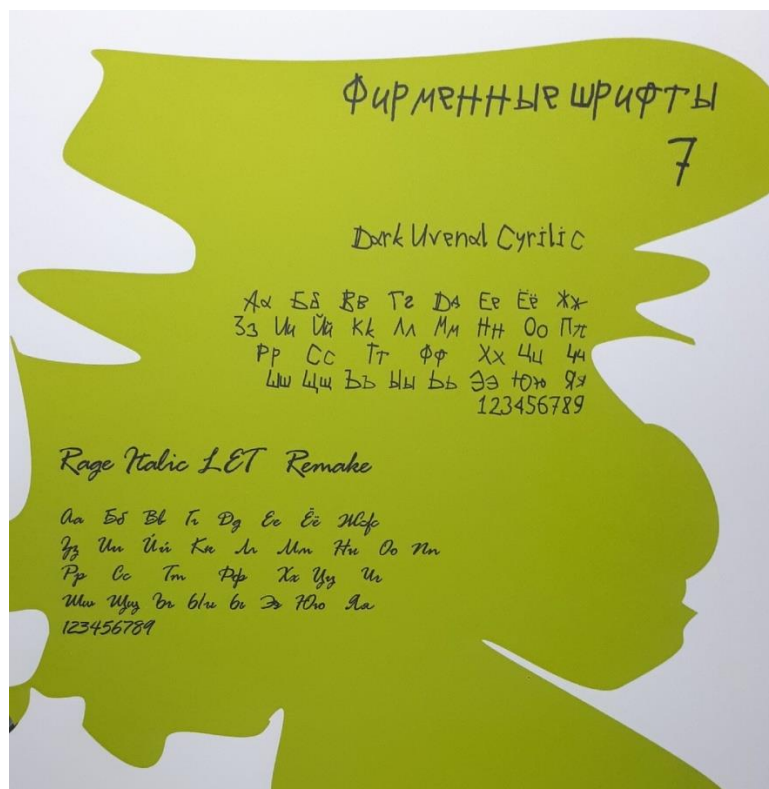 Фирменные шрифты
7
Dark Uvenal Cyrilic
Аа Бб Вв Гг Дд Ее Ёё Жж
Зз Ии Йй Кк Лл Мм Нн Оо Пп
Рр Сс Тт Фф Хх Цц Чч
Шш Щщ Ъъ Ыы Ьь Ээ Юю Яя
123456789
Rage Italic LET Remake
Аа Бб Вв Гг Дд Ее Ёё Жж
Зз Ии Йй Кк Лл Мм Нн Оо Пп
Рр Сс Тт Фф Хх Цц Чч
Шш Щщ Ъъ Ыы Ьь Ээ Юю Яя
123456789